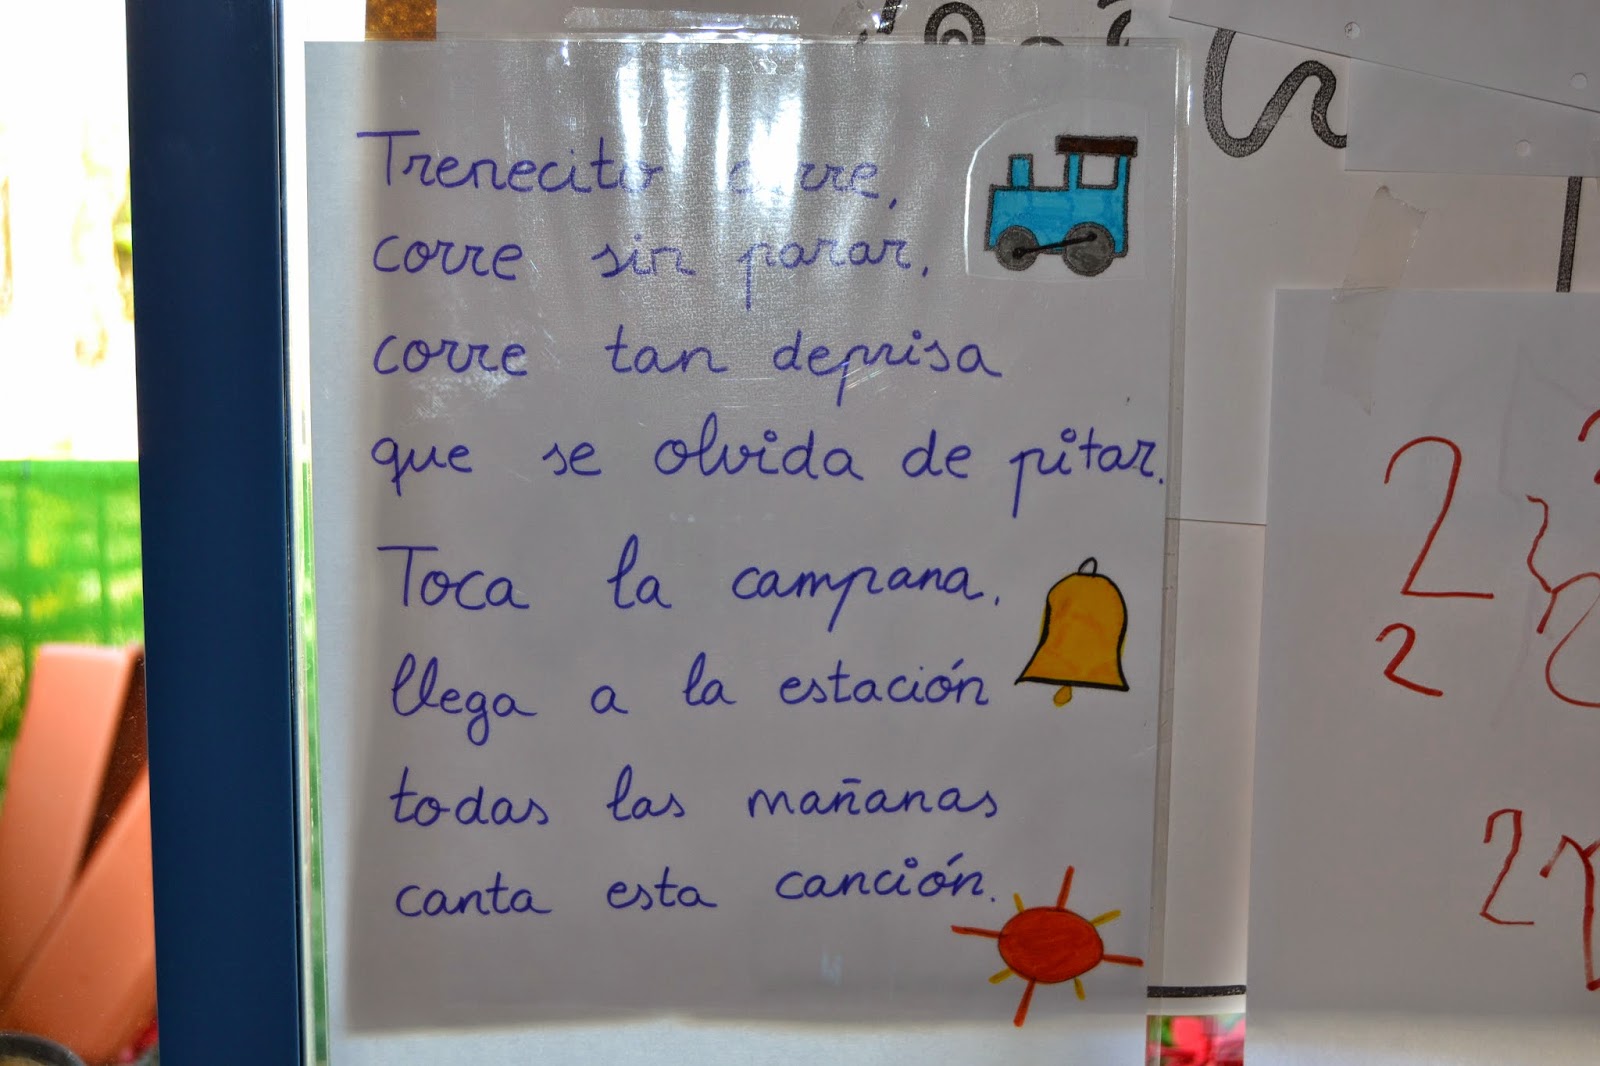 Trenecito corre,
corre sin parar,
corre tan deprisa
que se olvida de pitar.
Toca la campana,
llega a la estación
todas las mañanas
canta esta canción.
2
2
2